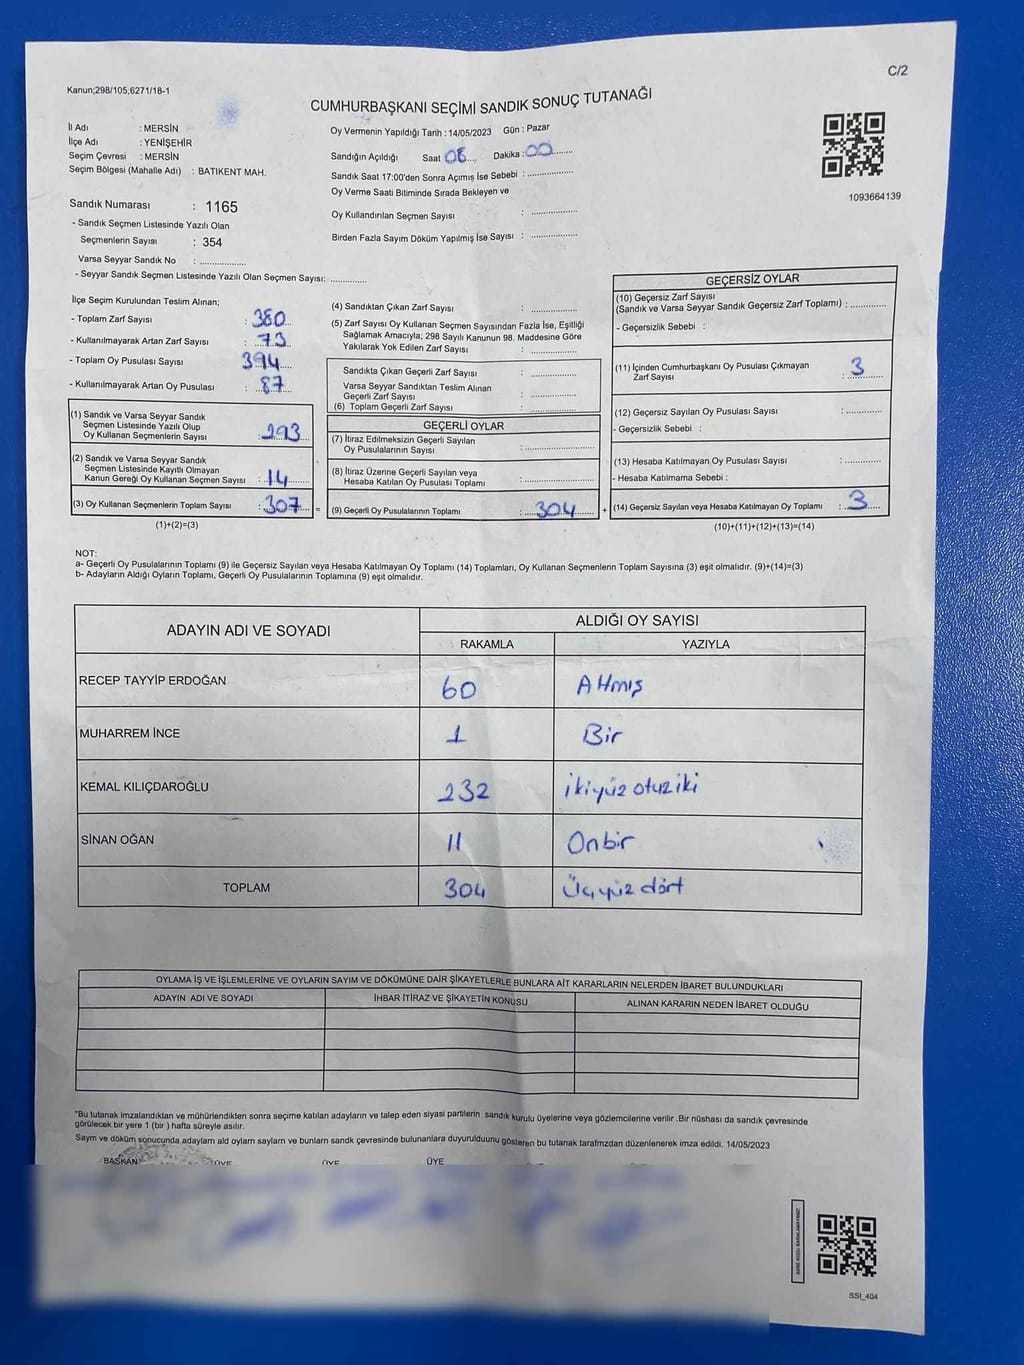 C/2
Kanun;298/105;6271/18-1
CUMHURBAŞKANI SEÇİMİ SANDIK SONUÇ TUTANAĞI
İl Adı : MERSİN
İlçe Adı : YENİŞEHİR
Seçim Çevresi : MERSİN
Seçim Bölgesi (Mahalle Adı) : BATIKENT MAH.
Oy Vermenin Yapıldığı Tarih : 14/05/2023 Gün : Pazar
Sandığın Açıldığı Saat 08 Dakika : 00
Sandık Saat 17:00'den Sonra Açımış İse Sebebi :
Oy Verme Saati Bitiminde Sırada Bekleyen ve
Oy Kullandırılan Seçmen Sayısı :
Birden Fazla Sayım Döküm Yapılmış İse Sayısı :
1093664139
Sandık Numarası : 1165
- Sandık Seçmen Listesinde Yazılı Olan
Seçmenlerin Sayısı : 354
Varsa Seyyar Sandık No :
- Seyyar Sandık Seçmen Listesinde Yazılı Olan Seçmen Sayısı:
İlçe Seçim Kurulundan Teslim Alınan;
- Toplam Zarf Sayısı : 380
- Kullanılmayarak Artan Zarf Sayısı : 73
- Toplam Oy Pusulası Sayısı : 394
- Kullanılmayarak Artan Oy Pusulası : 87
(1) Sandık ve Varsa Seyyar Sandık
Seçmen Listesinde Yazılı Olup
Oy Kullanan Seçmenlerin Sayısı : 293
(2) Sandık ve Varsa Seyyar Sandık
Seçmen Listesinde Kayıtlı Olmayan
Kanun Gereği Oy Kullanan Seçmen Sayısı : 14
(3) Oy Kullanan Seçmenlerin Toplam Sayısı : 307 =
(1)+(2)=(3)
(4) Sandıktan Çıkan Zarf Sayısı :
(5) Zarf Sayısı Oy Kullanan Seçmen Sayısından Fazla İse, Eşitliği
Sağlamak Amacıyla; 298 Sayılı Kanunun 98. Maddesine Göre
Yakılarak Yok Edilen Zarf Sayısı :
Sandıkta Çıkan Geçerli Zarf Sayısı :
Varsa Seyyar Sandıktan Teslim Alınan
Geçerli Zarf Sayısı :
(6) Toplam Geçerli Zarf Sayısı :
GEÇERLİ OYLAR
(7) İtiraz Edilmeksizin Geçerli Sayılan
Oy Pusulalarının Sayısı :
(8) İtiraz Üzerine Geçerli Sayılan veya
Hesaba Katılan Oy Pusulası Toplamı :
(9) Geçerli Oy Pusulalarının Toplamı : 304 +
GEÇERSİZ OYLAR
(10) Geçersiz Zarf Sayısı
(Sandık ve Varsa Seyyar Sandık Geçersiz Zarf Toplamı) :
- Geçersizlik Sebebi :
(11) İçinden Cumhurbaşkanı Oy Pusulası Çıkmayan
Zarf Sayısı : 3
(12) Geçersiz Sayılan Oy Pusulası Sayısı :
- Geçersizlik Sebebi :
(13) Hesaba Katılmayan Oy Pusulası Sayısı :
- Hesaba Katılmama Sebebi :
(14) Geçersiz Sayılan veya Hesaba Katılmayan Oy Toplamı : 3
(10)+(11)+(12)+(13)=(14)
NOT:
a- Geçerli Oy Pusulalarının Toplamı (9) ile Geçersiz Sayılan veya Hesaba Katılmayan Oy Toplamı (14) Toplamları, Oy Kullanan Seçmenlerin Toplam Sayısına (3) eşit olmalıdır. (9)+(14)=(3)
b- Adayların Aldığı Oyların Toplamı, Geçerli Oy Pusulalarının Toplamına (9) eşit olmalıdır.
ADAYIN ADI VE SOYADI ALDIĞI OY SAYISI
RAKAMLA YAZIYLA
RECEP TAYYİP ERDOĞAN 60 Altmış
MUHARREM İNCE 1 Bir
KEMAL KILIÇDAROĞLU 232 ikiyüz otuz iki
SİNAN OĞAN 11 Onbir
TOPLAM 304 Üçyüz dört
OYLAMA İŞ VE İŞLEMLERİNE VE OYLARIN SAYIM VE DÖKÜMÜNE DAİR ŞİKAYETLERLE BUNLARA AİT KARARLARIN NELERDEN İBARET BULUNDUKLARI
ADAYIN ADI VE SOYADI İHBAR İTİRAZ VE ŞİKAYETİN KONUSU ALINAN KARARIN NEDEN İBARET OLDUĞU
*Bu tutanak imzalandıktan ve mühürlendikten sonra seçime katılan adayların ve talep eden siyasi partilerin sandık kurulu üyelerine veya gözlemcilerine verilir .Bir nüshası da sandık çevresinde
görülecek bir yere 1 (bir ) hafta süreyle asılır.
Sayım ve döküm sonucunda adayların ald oyların sayların ve bunların sandk çevresinde bulunanlara duyurulduunu gösteren bu tutanak tarafmzdan düzenlenerek imza edildi. 14/05/2023
BAŞKAN ÜYE ÜYE ÜYE
SSI_404